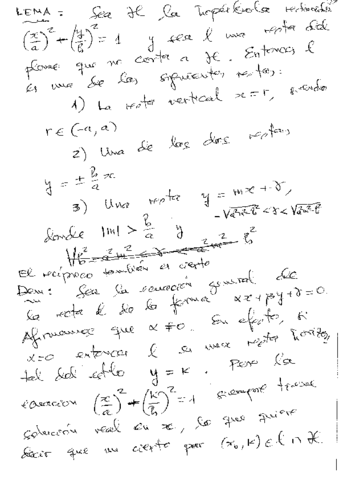 LEMA: Sea H la hipérbola
(x/a)² - (y/b)² = 1 y sea l una recta del
plano que no corta a H. Entonces l
es una de las siguientes rectas:
1) La recta vertical x = r, siendo
r ∈ (-a, a)
2) Una de las dos rectas
y = ± b/a x.
3) Una recta y = mx + γ,
donde |m| > b/a y -√(a²m²-b²) < γ < √(a²m²-b²)
El recíproco también es cierto
Dem: Sea la ecuación general de
la recta l de la forma αx + βy + γ = 0.
Afirmamos que α ≠ 0. En efecto, si
α = 0 entonces l es una recta
tal del estilo y = k. Pero la
ecuación (x/a)² - (k/b)² = 1 siempre tiene
solución real en x, lo que quiere
decir que un cierto par (x₀, k) ∈ l ∩ H.